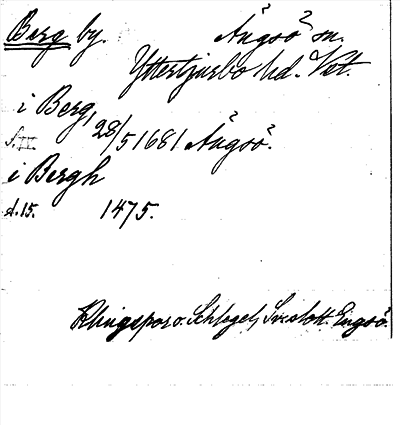 Berg by. Ängsö sn.
Yttertjurbo hd. Vstl.
i Berg, 28/5 1681 Ängsö.
i Bergh
d. 15. 1475.
Klingspor o. Schlegel, Sv. slott. Engsö.